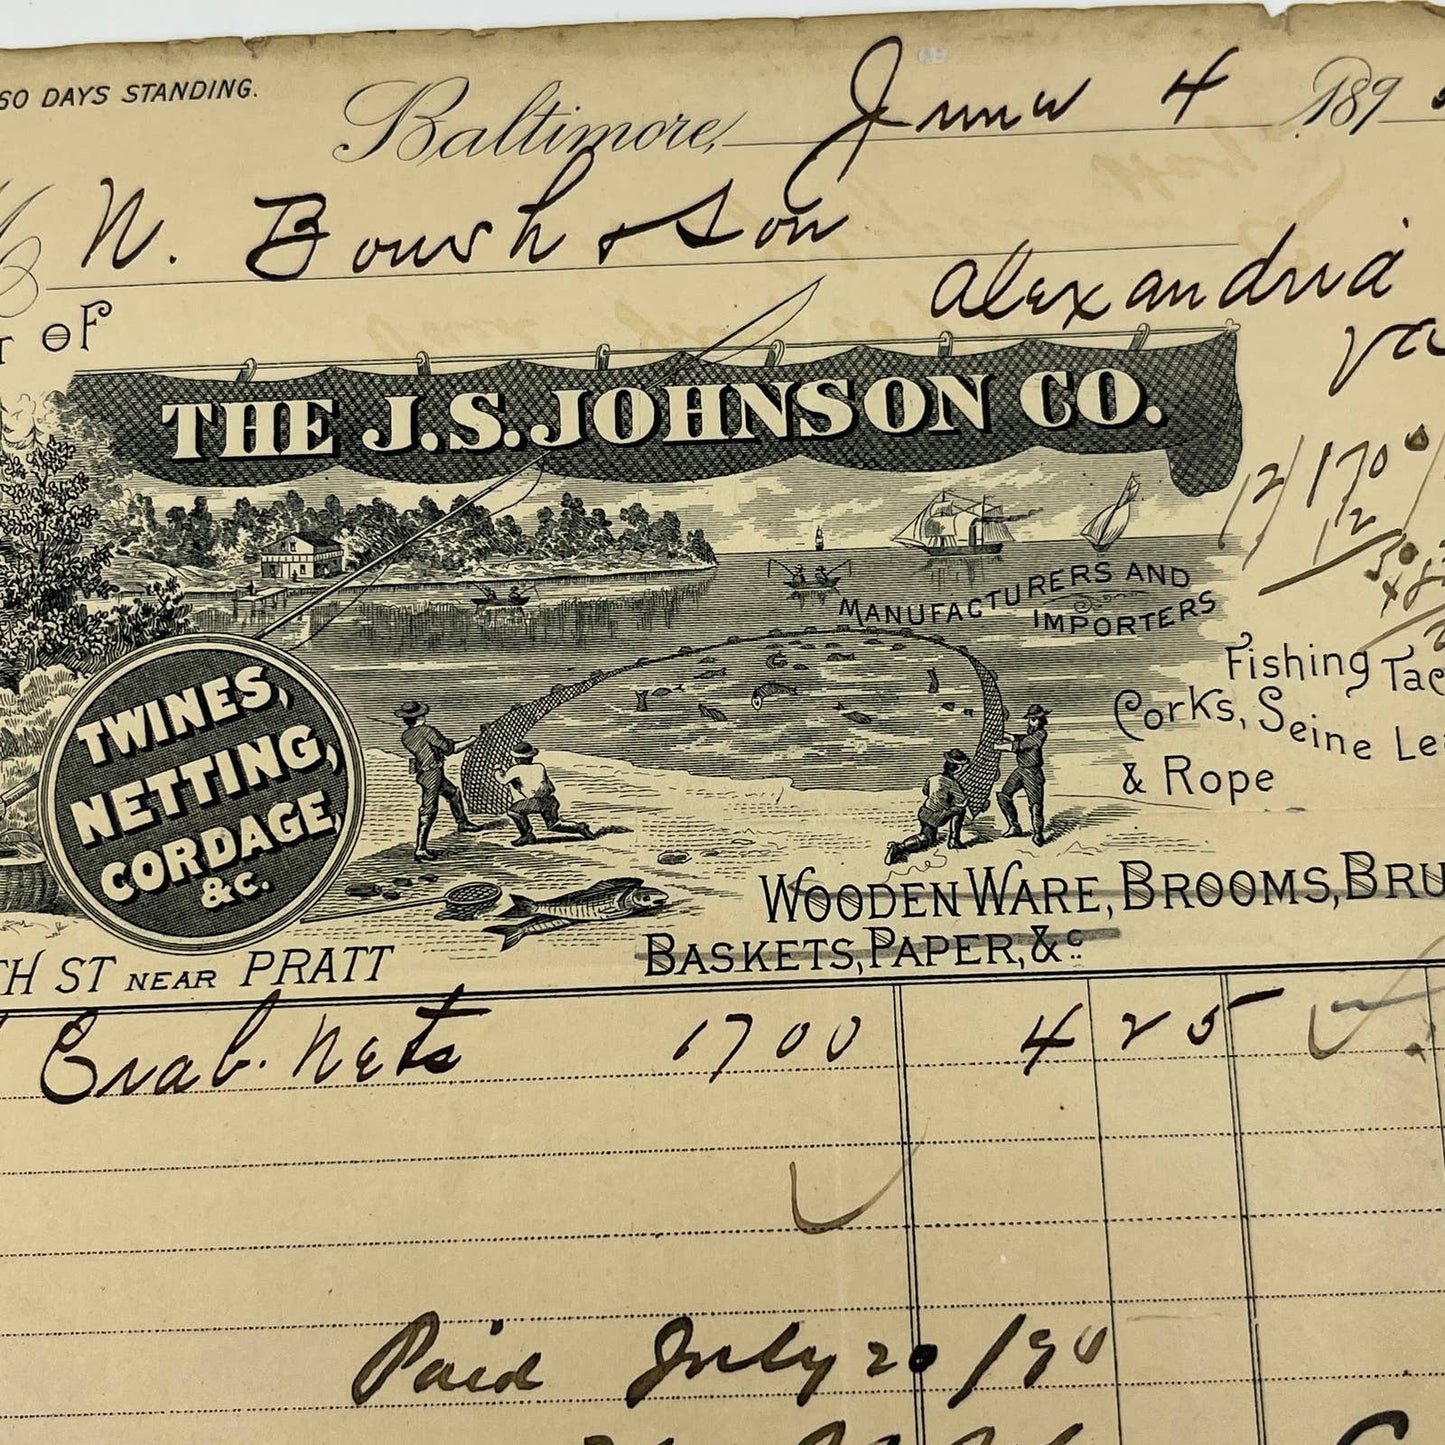 60 DAYS STANDING.
Baltimore, June 4 189
N. Boush & Son
Alexandria
Va
OF
THE J.S. JOHNSON CO.
12/1700/
12
50
MANUFACTURERS AND
IMPORTERS
Fishing Tac
Corks, Seine Le
& Rope
TWINES,
NETTING,
CORDAGE,
&c.
WOODEN WARE, BROOMS, BRU
BASKETS, PAPER, &c.
TH ST NEAR PRATT
Crab. Nets 1700 4 25
Paid July 20/90